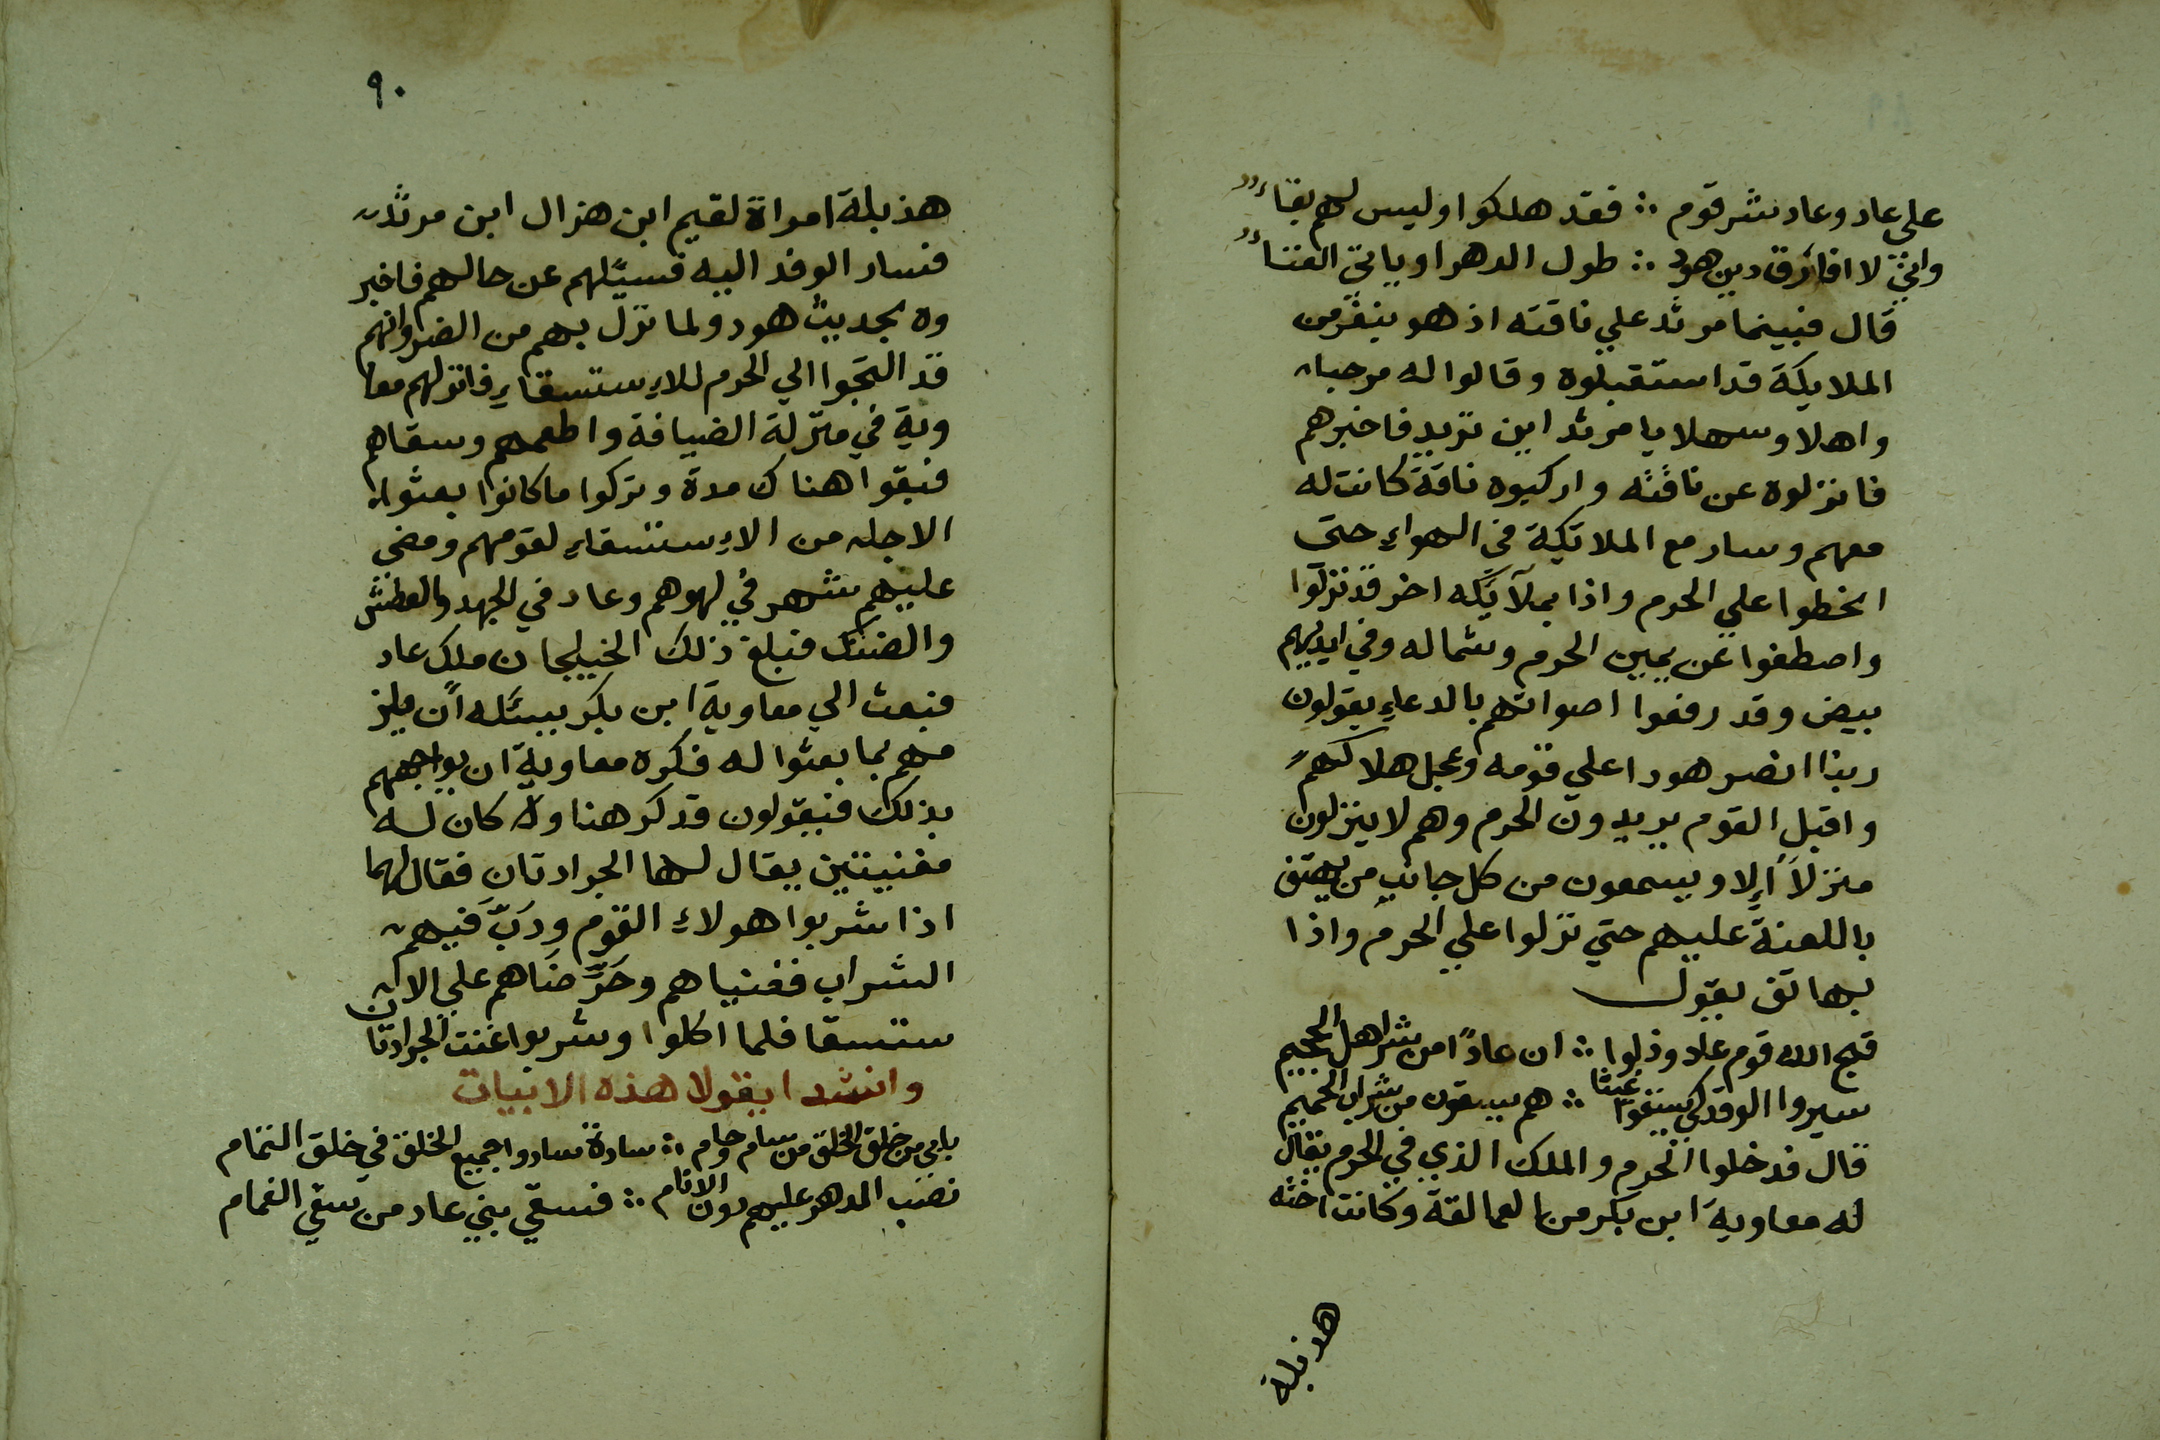 علي عاد وعاد شر قوم ∴ فقد هلكوا وليس لهم بقاء
واني لا افارق دين هود ∴ طول الدهر او ياتي الفناء
قال فبينما مرثد علي ناقته اذ هو بنفر من
الملايكة قد استقبلوه وقالوا له مرحبا
واهلا وسهلا يا مرثد اين تريد فاخبرهم
فانزلوه عن ناقته واركبوه ناقة كانت له
معهم وسار مع الملائكة في الهواء حتى
انحطوا علي الحرم واذا بملآيكه اخر قد نزلوا
واصطفوا عن يمين الحرم وشماله وفي ايديهم
بيض وقد رفعوا اصواتهم بالدعاء يقولون
ربنا انصر هودا علي قومه وعجل هلاكهم
واقبل القوم يريدون الحرم وهم لا ينزلون
منزلاً إلا ويسمعون من كل جانب من يهتف
باللعنة عليهم حتي نزلوا علي الحرم واذا
بهاتف يقول
قبح الله قوم عاد وذلوا ∴ ان عادًا من شر اهل الجحيم
سيروا الوفد كي يسقوا غيثا ∴ هم يسقون من شراب الحميم
قال فدخلوا الحرم والملك الذي في الحرم يقال
له معاوية ابن بكر من العمالقة وكانت اخته
هذبلة
٩٠
هذبلة امراة لقيم ابن هزال ابن مرثد
فسار الوفد اليه فسئلهم عن حالهم فاخبر
وه بحديث هود ولما نزل بهم من الضر وانهم
قد التجوا الي الحرم للاِستسقاءِ فانزلهم معا
وية في منزلة الضيافة واطعمهم وسقاهم
فبقوا هناك مدة وتركوا ما كانوا بعثوا
الاجله من الاِستسقاءِ لقومهم ومضي
عليهم شهر في لهوهم وعاد في الجهد والعطش
والضنك فبلغ ذلك الخيلجان ملك عاد
فبعث الي معاوية ابن بكر يسئله ان يلز
مهم بما بعثوا له فكره معاوية ان يواجههم
بذلك فيقولون قد كرهنا ولا كان له
مغنيتين يقال لها الجرادتان فقال لهما
اذا شربوا هولاء القوم ودَبّ فيهم
الشراب فغنياهم وحَرِّضَاهم علي الا
ستسقا فلما اكلوا وشربوا غنت الجرادتان
وانشدا يقولا هذه الابيات
يابي من خلق الخلق من سام وحام ∴ سادة سادوا جميع الخلق في خلق التمام
نصب الدهر عليهم دون الانام ∴ فسقي بني عاد من سقي الغمام